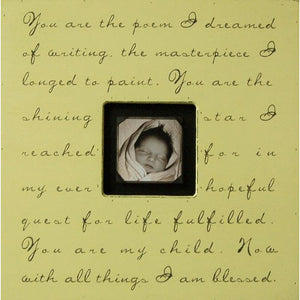 You are the poem I dreamed
of writing, the masterpiece I
longed to paint. You are the
shining star I
reached for in
my ever hopeful
quest for life fulfilled.
You are my child. Now
with all things I am blessed.